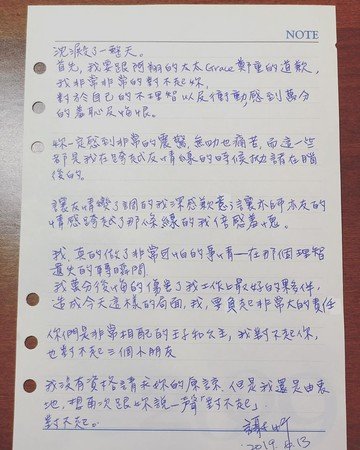 NOTE
沈澱了一整天。
首先,我要跟阿翔的太太Grace鄭重的道歉,
我非常非常的對不起妳,
對於自己的不理智以及衝動感到萬分
的羞恥及悔恨。
妳一定感到非常的震驚、無助也痛苦,而這一些
都是我在跨越友情線的時候拋諸在腦
後的。
讓友情變了調的我深感歉意,讓亦師亦友的
情感跨越了那條線的我倍感羞愧。
我,真的做了非常可怕的事情—在那個理智
喪失的時間
我萬分後悔的傷害了我工作上最好的夥伴,
造成今天這樣的局面,我,要負起非常大的責任
你們是非常相配的王子和公主,我對不起你,
也對不起三個小朋友
我沒有資格請求妳的原諒,但是我還是由衷
地,想再次跟妳說一聲「對不起」.
對不起。
謝忻
2019.4.13